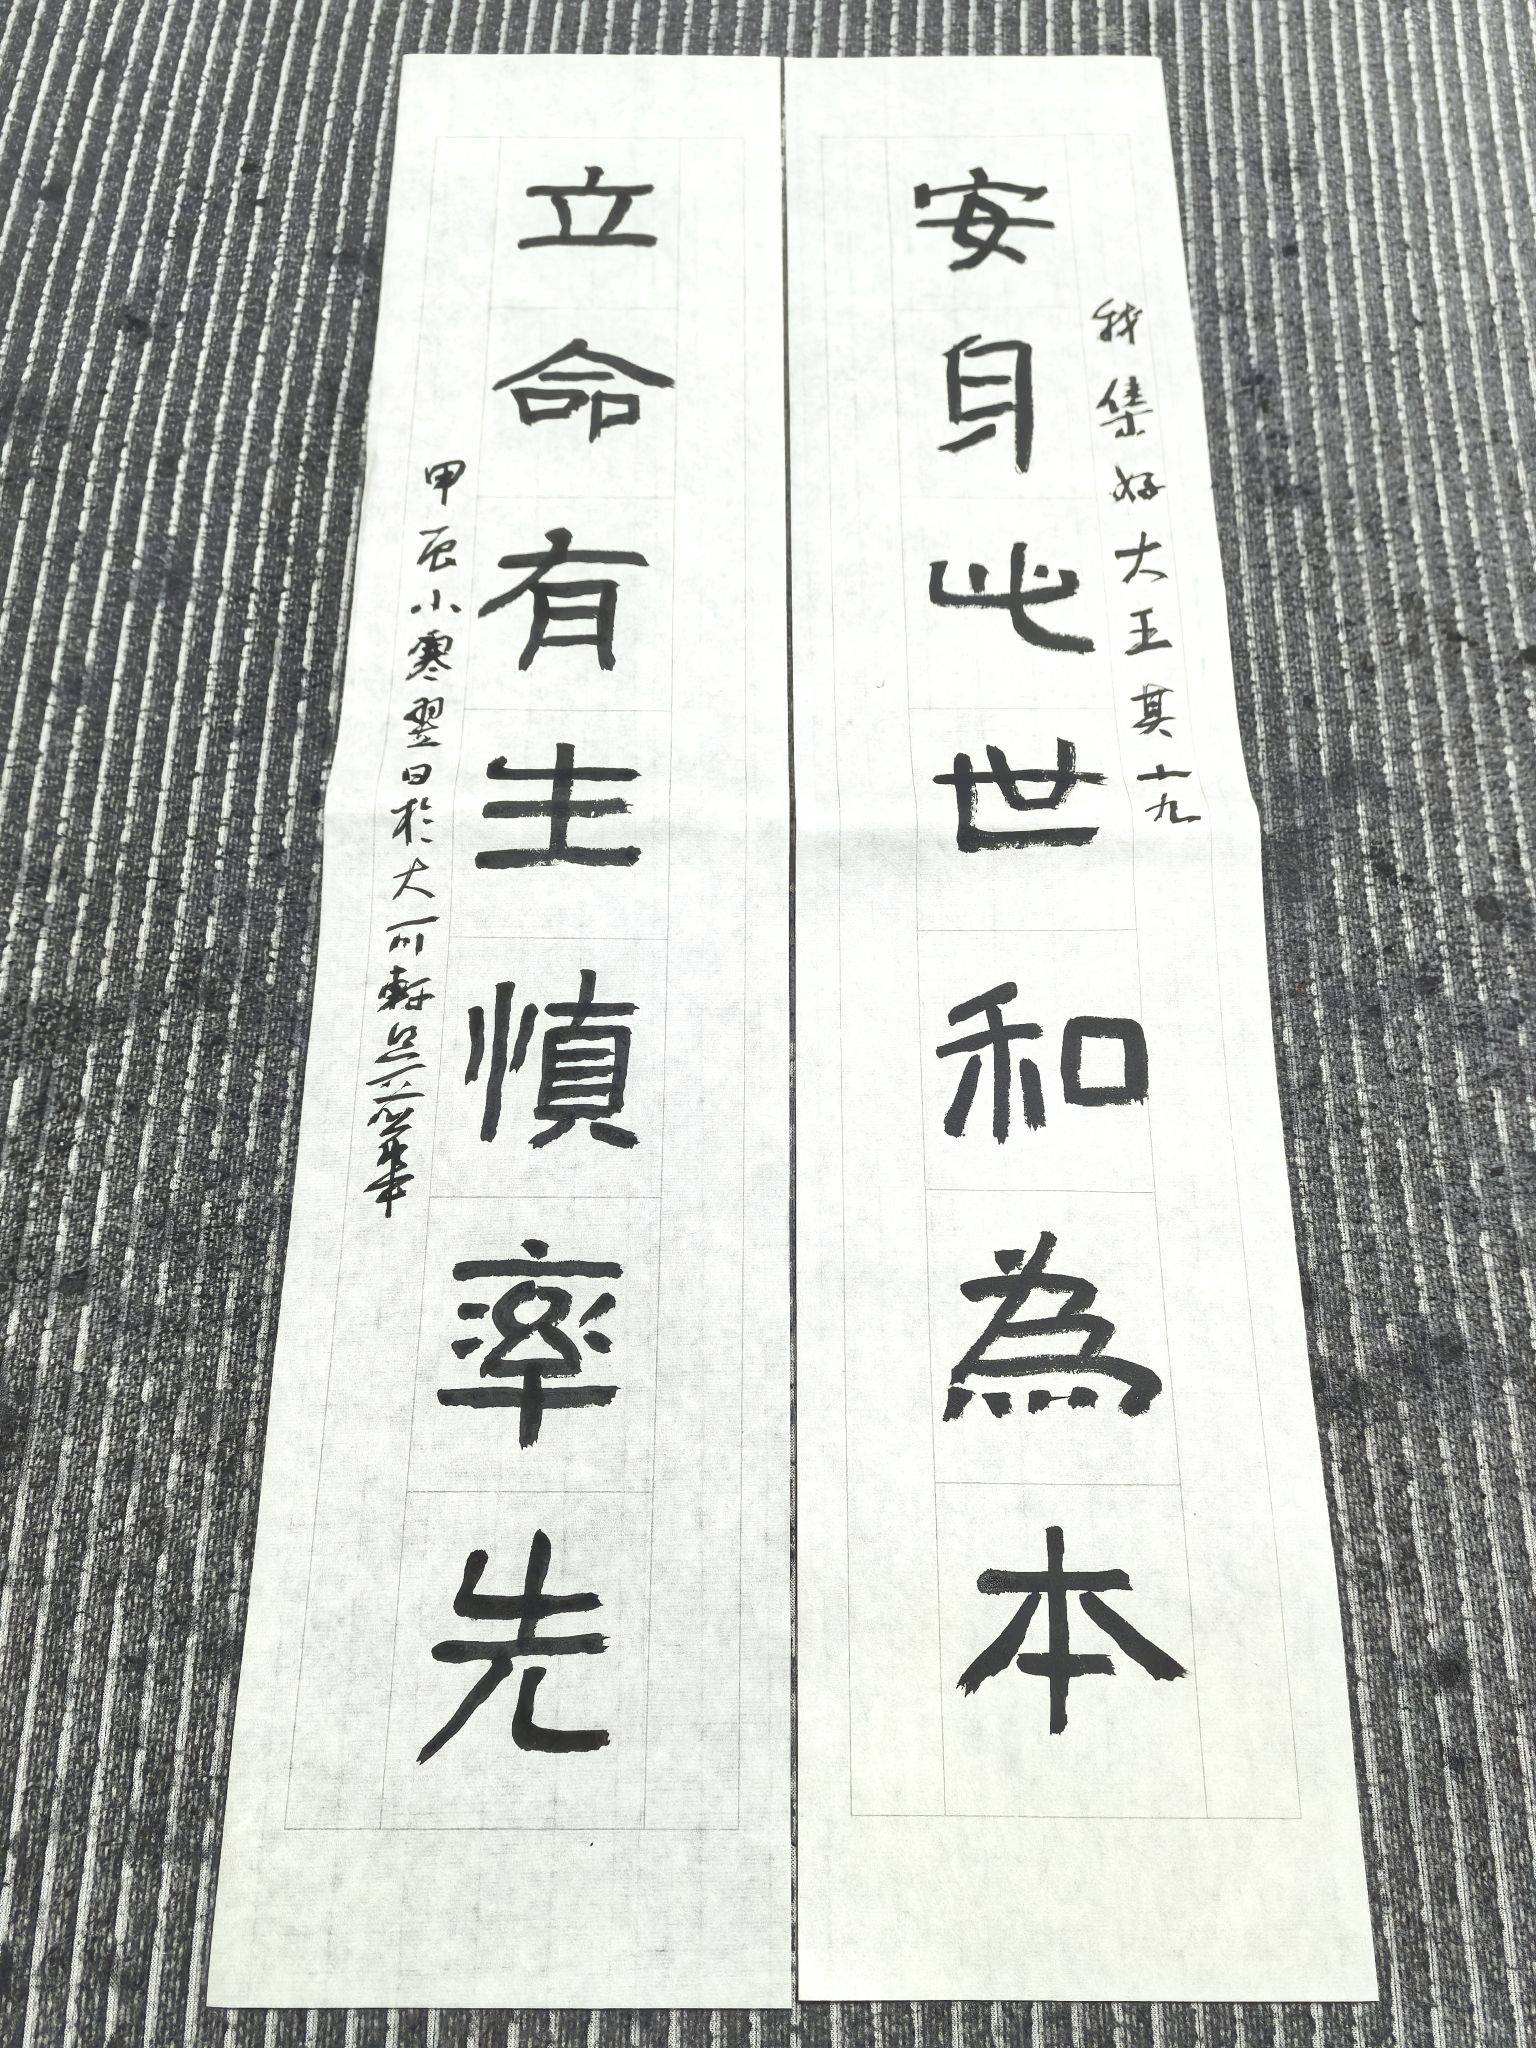 我集好大王其十九
安身心世和為本
立命有生慎率先
甲辰小寒翌日於大可軒